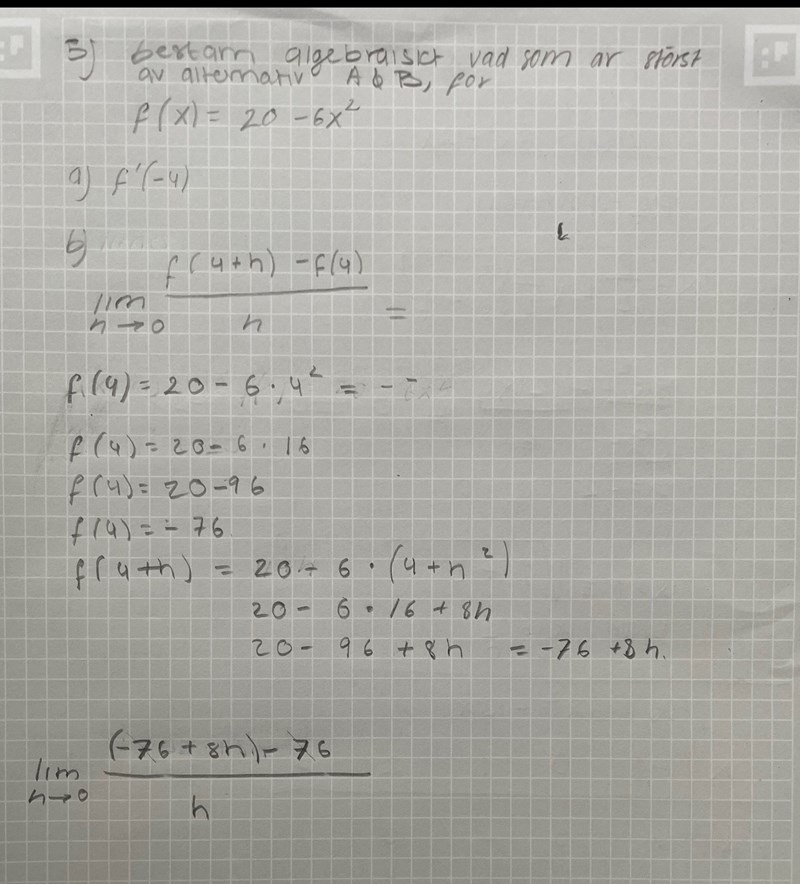 3) bestäm algebraiskt vad som är störst
av alternativ A & B, för
f(x) = 20 - 6x²
a) f'(-4)
b)
lim h→0 (f(4+h) - f(4)) / h =
f(4) = 20 - 6 · 4² = - -
f(4) = 20 - 6 · 16
f(4) = 20 - 96
f(4) = - 76
f(4+h) = 20 - 6 · (4+h²)
20 - 6 · 16 + 8h
20 - 96 + 8h = -76 + 8h.
lim h→0 ((-76 + 8h) - 76) / h